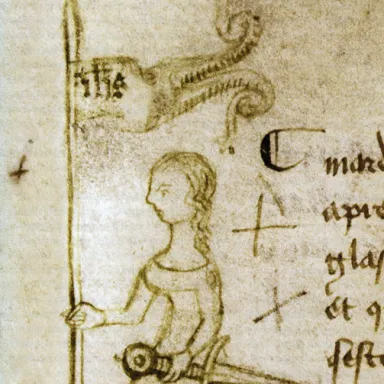 ihs
C mard
apre
glas
Et q
sest